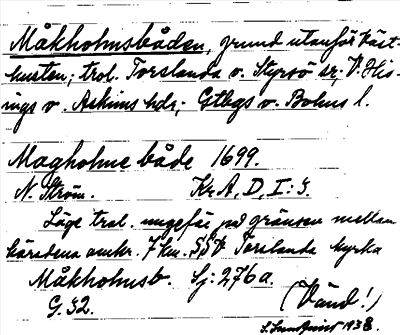 Måkholmsbåden, grund utanför väst-
kusten; trol. Torslanda o. Styrsö sr; V. His-
ings o. Askims hdr; Gtbgs o. Bohus l.
Magholme både 1699.
N. Ström. Kr. A, D, I: 3.
Läge trol. ungefär på gränsen mellan
häradena omkr. 7 km. SSV Torslanda kyrka
Måkholmsb. Sj: 276a.
G. 32. (Vänd!)
1938.